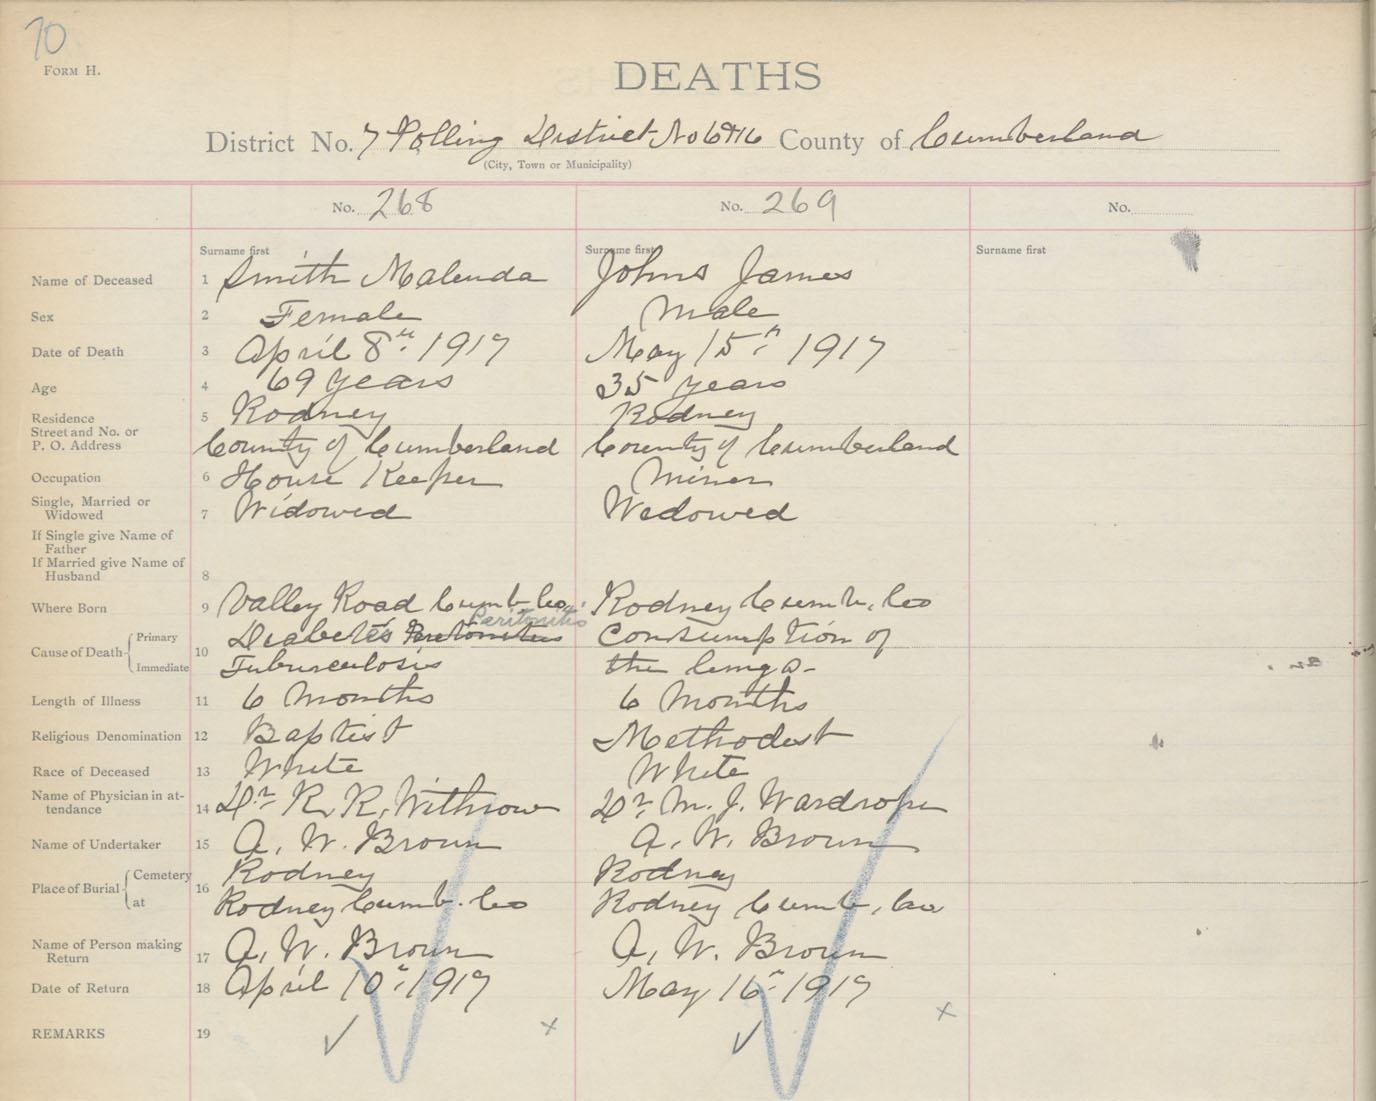 70
FORM H.
DEATHS
District No. 7 Polling District No 6&16 County of Cumberland
(City, Town or Municipality)
No. 268 No. 269 No.
Surname first Surname first Surname first
Name of Deceased 1 Smith Malenda Johns James
Sex 2 Female Male
Date of Death 3 April 8th 1917 May 15th 1917
Age 4 69 years 35 years
Residence 5 Rodney Rodney
Street and No. or
P. O. Address County of Cumberland County of Cumberland
Occupation 6 House Keeper Miner
Single, Married or
Widowed 7 Widowed Wedowed
If Single give Name of
Father
If Married give Name of
Husband 8
Where Born 9 Valley Road Cumb Co, Rodney Cumb, Co
Peritonitis
Cause of Death Primary 10 Diabetes Consumption of
Immediate Tuburculosis the lungs-
Length of Illness 11 6 Months 6 Months
Religious Denomination 12 Baptist Methodest
Race of Deceased 13 White White
Name of Physician in at-
tendance 14 Dr R. R. Withrow Dr M. J. Wardrope
Name of Undertaker 15 A. W. Brown A. W. Brown
Place of Burial Cemetery 16 Rodney Rodney
at Rodney Cumb. Co Rodney Cumb, Co
Name of Person making
Return 17 A. W. Brown A. W. Brown
Date of Return 18 April 10th 1917 May 16th 1917
REMARKS 19